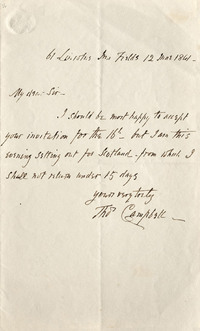 61 Lincolns Inn Fields 12 Mar 1841 -
My dear Sir -
I should be most happy to accept
your invitation for the 16th - but I am this
evening setting out for Scotland - from which I
shall not return under 15 days
yours very truly
Thos Campbell -